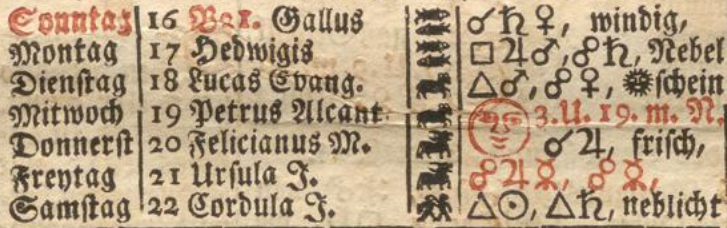 Sonntag 16 Gallus ☌♄♀, windig,
Montag 17 Hedwigis □♃♂, ☍♄, Nebel
Dienſtag 18 Lucas Evang. △♂, ☍♀, ☀ſchein
Mitwoch 19 Petrus Alcant 3. U. 19. m. N.
Donnerſt 20 Felicianus M. ☌♃, friſch,
Freytag 21 Urſula J. ☍♃☿, ☍☿,
Samſtag 22 Cordula J. △☉, △♄, neblicht